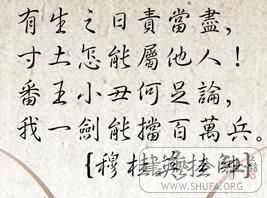 有生之日責當盡，
寸土怎能屬他人！
番王小丑何足論，
我一劍能擋百萬兵。
{穆桂英掛帥}
WWW.SHUFA.ORG